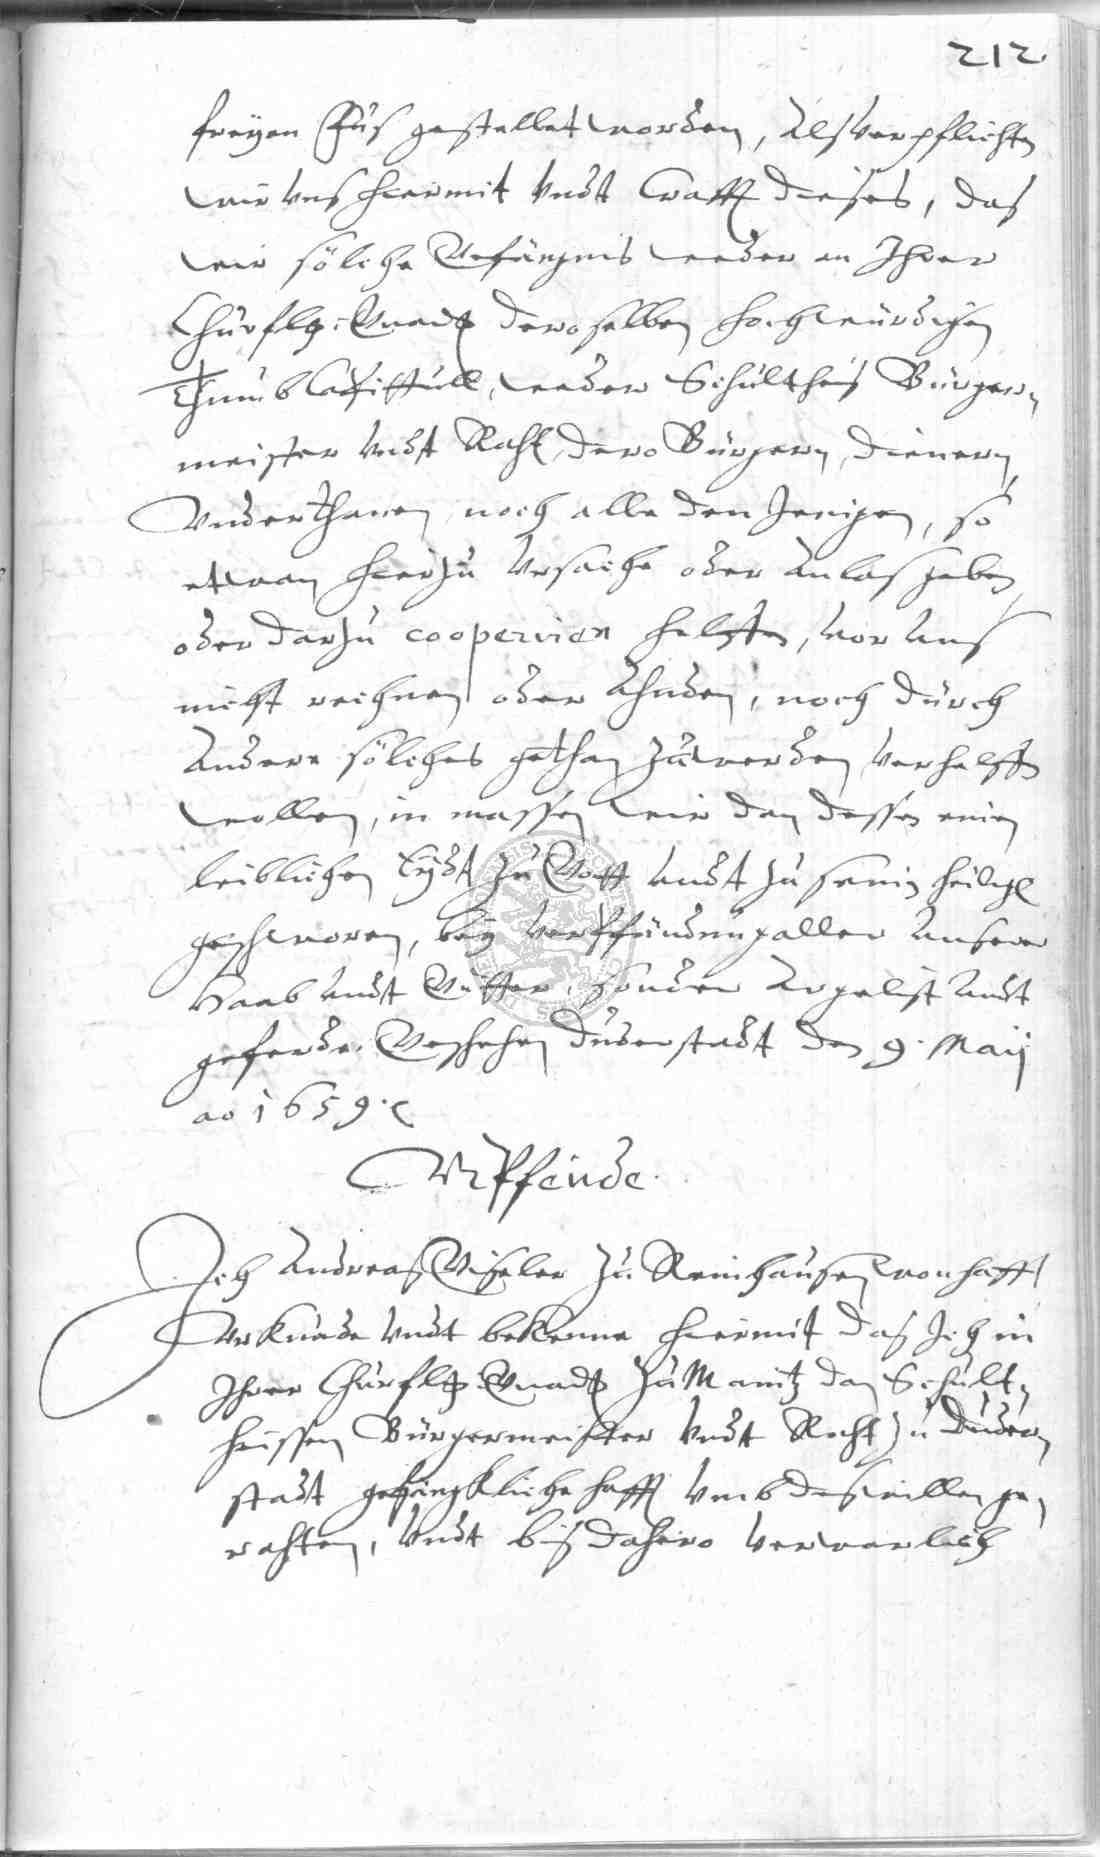 212.
freÿen Fus gestellet worden, Als verpflichten
wir uns hiermit undt Crafft dieses, das
wir sölche Gefängnis weder an Ihrer
Churfl: Gnad deroselben hochwürdigen
Thumb Capittull, weder Schultheis Bürger,,
meister undt Raht, dero Bürgern, dienern,
Underthanen, noch alle den Jenigen, so
etwan hierzu Ursache oder Anlas geben,
oder darzu cooperiren helffen, vor uns
nicht rechnen oder Ahnden, noch durch
Andere sölches gethan zu werden verhelffen
wollen, in massen wir den dessen einen
leiblichen Eÿdt zu Gott undt zu seinen heilig
geschworen, beÿ verpfändung aller unserer
Haab undt Gütter, sonder Argelist undt
geferde. Geschehen Duderstadt den 9. Maij
ao 1659.
Urpfeide.
Ich Andreas zu Reinhausen wonhafft
Urkunde undt bekenne hiermit das Ich in
Ihrer Churfl Gnad zu Maintz den Schult,,
heissen Bürgermeister undt Raht zu Duder,,
stadt gefängkliche hafft umb deswillen ge,,
rahten, undt bis dahero verwarlich